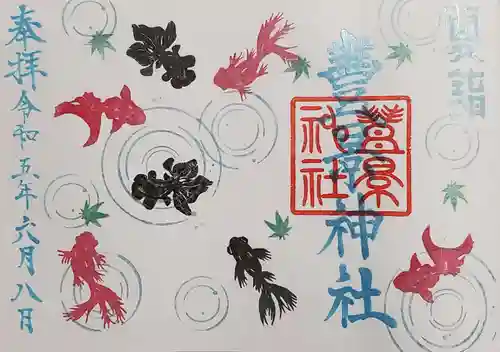 夏詣
豊景神社
豊景
神社
奉拝
令和五年六月八日